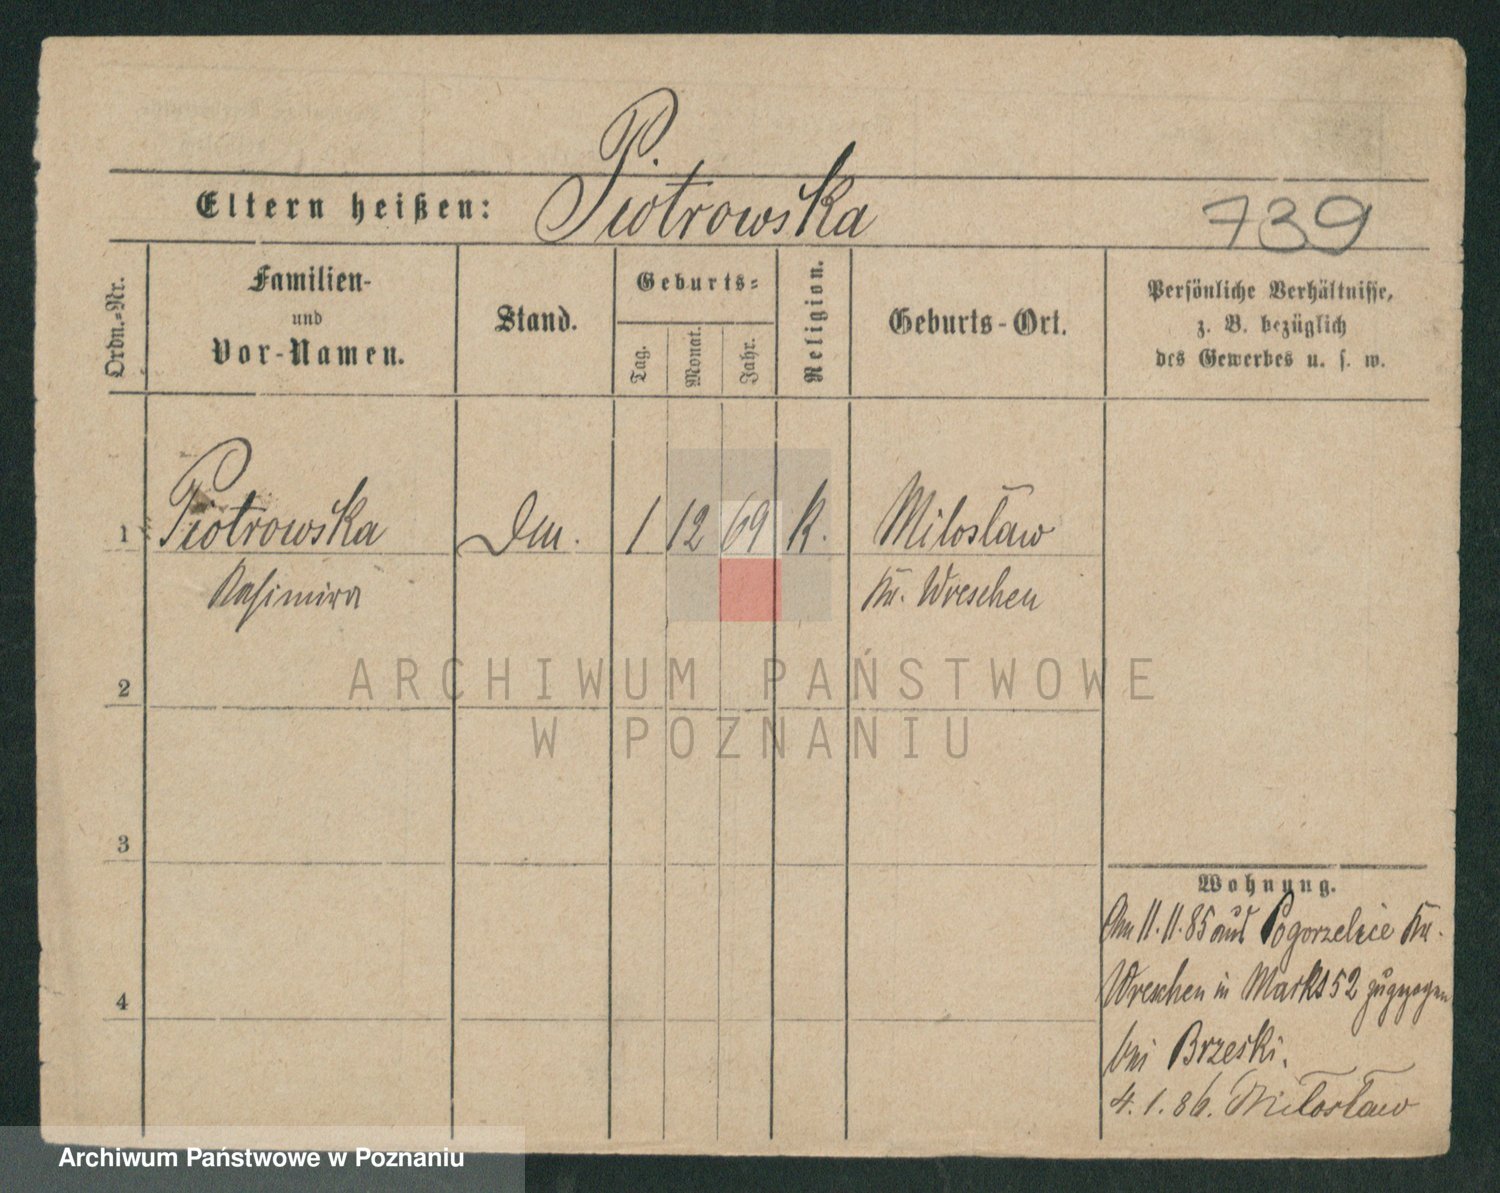 Eltern heißen: Piotrowska
739
Ordn.=Nr.
Familien-
und
Vor-Namen.
Stand.
Geburts=
Tag.
Monat.
Jahr.
Religion.
Geburts-Ort.
Persönliche Verhältnisse,
z. B. bezüglich
des Gewerbes u. s. w.
1 Piotrowska 1 12 69 K. Miloslaw
Kasimira Kr. Wreschen
2
3
4
Wohnung.
Am 11.11.85 aus Pogorzelice Kr.
Wreschen in Markt 52 zugezogen
bei Brzeski.
4.1.86. Miloslaw
ARCHIWUM PAŃSTWOWE
W POZNANIU
Archiwum Państwowe w Poznaniu